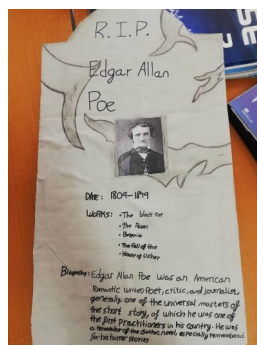 R.I.P.
Edgar Allan
Poe
DATE: 1809-1849
WORKS: • The black cat
• The Raven
• Berenice
• The Fall of the
• House of Usher
Biography: Edgar Allan Poe was an American
romantic writer, Poet, critic, and journalist,
generally one of the universal masters of
the short story, of which he was one of
the first Practitioners in his country. He was
a renovator of the Gothic novel, especially remembered
for his horror stories